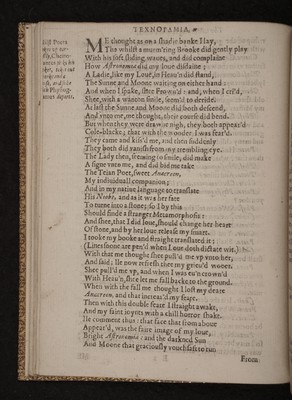 TEXNOTAMIA.
ME thought as on a shadie banke I lay,
That whilst a murm'ring Brooke did gently play
With his soft sliding waters, and did complaine
How Astronomia did my loue disdaine;
A Ladie, like my Loue, in Heau'n did stand,
The Sunne and Moone waiting on either hand:
And when I spake, shee frown'd: and, when I cri'd,
Shee, with a wanton smile, seem'd to deride.
At last the Sunne and Moone did both descend,
And vnto me, me thought, their course did bend.
But when they were drawne nigh, they both appear'd
Cole-blacke; that with the wonder I was fear'd.
They came and kiss'd me, and then suddenly
They both did vanish from my trembling eye.
The Lady then, seeming to smile, did make
A signe vnto me, and did bid me take
The Teian Poet, sweet Anacreon,
My indiuiduall companion;
And in my natiue language to translate
His and as it was her face
To turne into a stone; so I by this
Should finde a stranger Metamorphosis:
And shee, that I did loue, should change her heart
Of stone, and by her loue release my smart.
I tooke my booke and straight translated it;
(Lines soone are pen'd when Loue doth distate wit.)
With that me thought shee pull'd me vp vnto her,
And said: Ile now refresh thee my greeu'd wooer.
Shee pull'd me vp, and when I was eu'n crown'd
With Heau'n, shee let me fall backe to the ground.
When with the fall me thought I lost my deare
Anacreon, and that increas'd my feare.
Then with this double feare I straight awakt,
And my faint ioynts with a chill horror shakt.
Ile comment thus: that face that from aboue
Appear'd, was the faire image of my loue,
Bright Astronomia: and the darkned Sun
And Moone that graciously vouchsafes to run
From